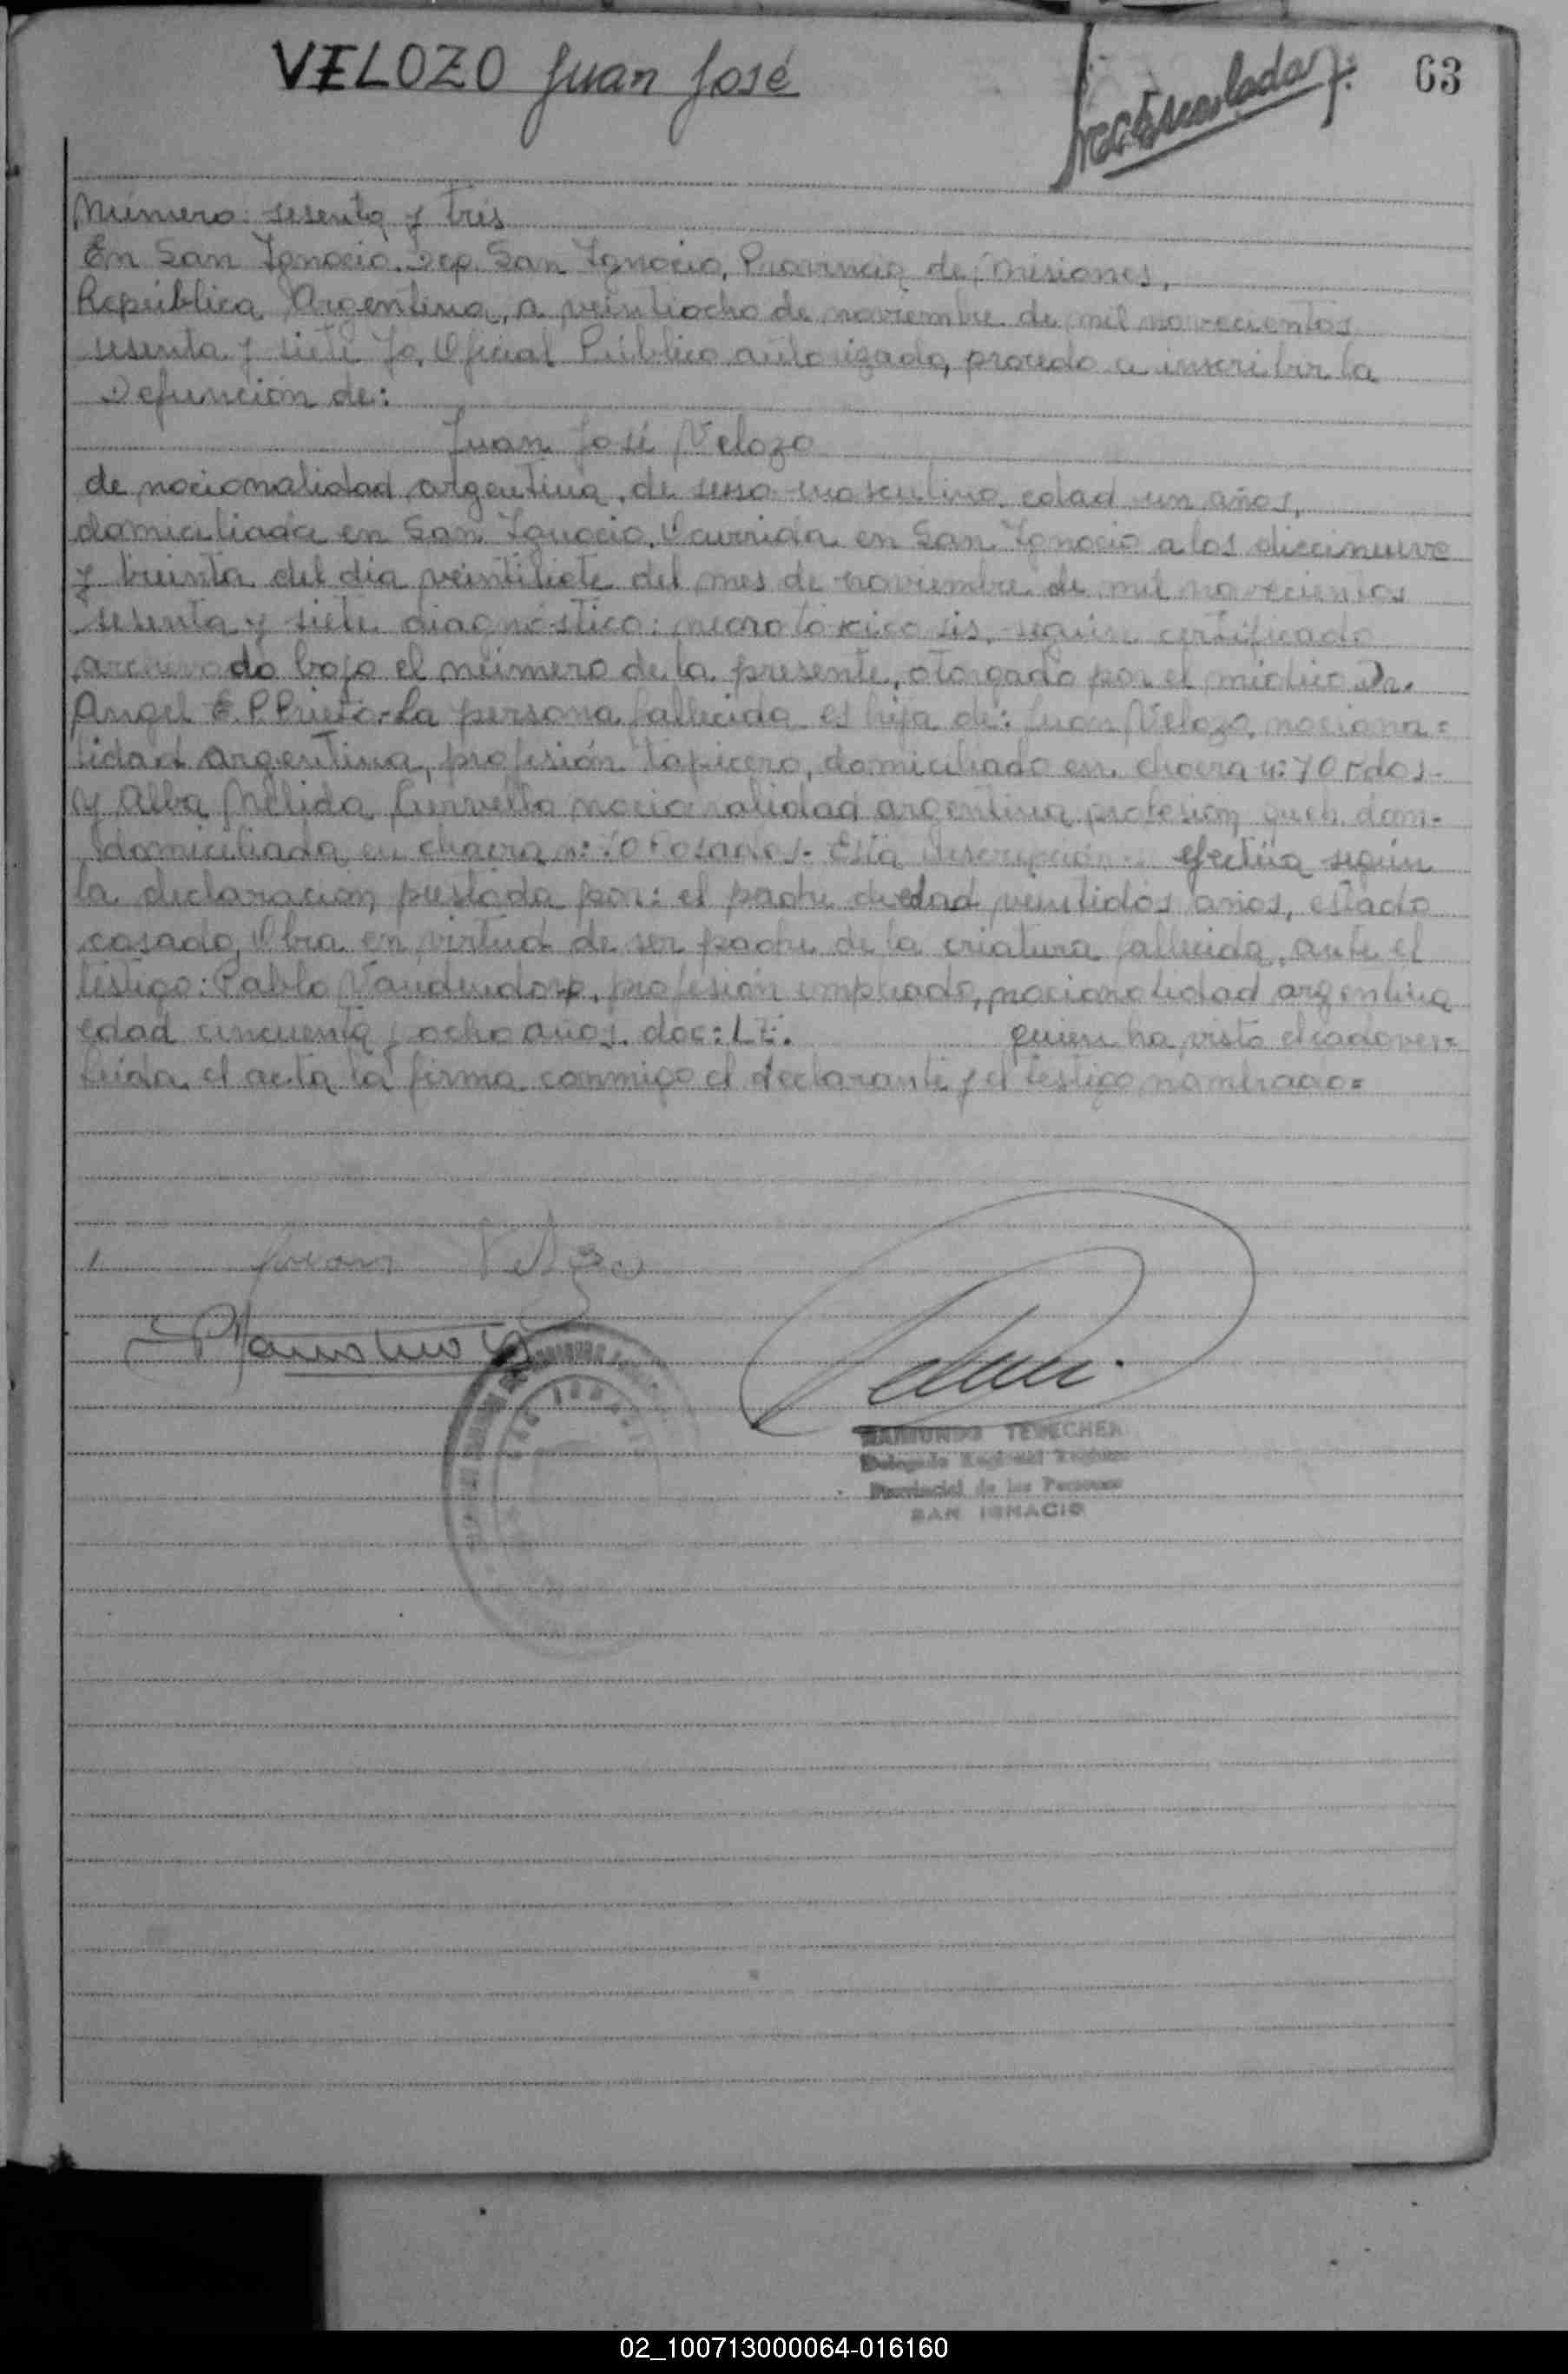 VELOZO Juan José
63
Número: sesenta y tres
En San Ignacio. Dep. San Ignacio, Provincia de: Misiones,
República Argentina, a veintiocho de noviembre de mil novecientos
sesenta y siete Yo, Oficial Público autorizado, procedo a inscribir la
Defunción de:
Juan José Velozo
de nacionalidad argentina, de sexo masculino edad un años,
domiciliada en San Ignacio. Ocurrida en San Ignacio a los diecinueve
y treinta del día veintisiete del mes de noviembre de mil novecientos
sesenta y siete diagnóstico: según certificado
archivado bajo el número de la presente, otorgado por el médico Dr.
Angel E. P. Prieto-La persona fallecida es hija de: Juan Velozo, naciona=
lidad argentina, profesión tapicero, domiciliado en chacra n: 70 Pdas.
y Alba Nélida nacionalidad argentina profesión queh. dom.
domiciliada en chacra n: 70 Posadas. Esta inscripción efectúa según
la declaración prestada por: el padre de edad veintidós años, estado
casado, Obra en virtud de ser padre de la criatura fallecida, ante el
testigo: Pablo profesión empleado, nacionalidad argentina
edad cincuenta y ocho años. doc: LE. quien ha visto el cadaver=
Leida el acta la firma conmigo el declarante y el testigo nombrado=
Juan Velozo
RAIMUNDO TERECHER
Delegado Regional Registro
Provincial de las Personas
SAN IGNACIO
02_100713000064-016160